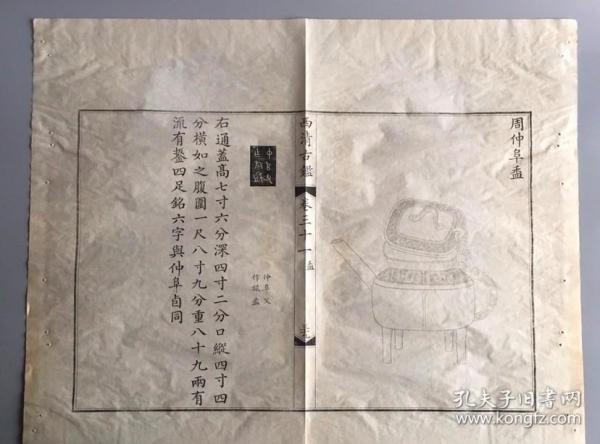 周仲阜盉
西清古鑑
卷三十一 盉
仲阜父
作旅盉
右通蓋高七寸六分深四寸二分口縱四寸四
分橫如之腹圍一尺八寸九分重八十九兩有
流有鋬四足銘六字與仲阜卣同
孔夫子旧书网
www.kongfz.com